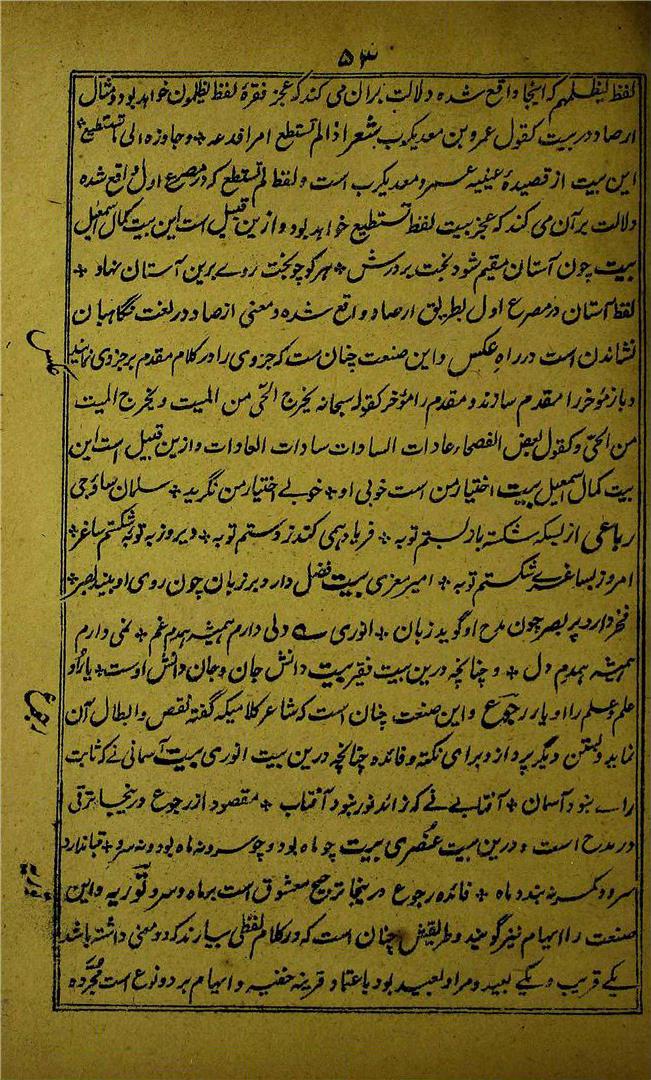 ۵۳
لفظ لیظلمهم که اینجا واقع شده دلالت بران می کند که عجز فقرهٔ لفظ یظلمون خواهد بود و مثال
ارصاد در بیت کقول عمرو بن معدیکرب شعر اذا لم تستطع امرا فدعه + وجاوزه الی ما تستطیع +
این بیت از قصیدهٔ عینیه عمرو معدیکرب است و لفظ لم تستطع که در مصرع اول واقع شده
دلالت بر آن می کند که عجز بیت لفظ تستطیع خواهد بود و ازین قبیل است این بیت کمال اسمعیل
بیت چون آستان مقیم شود بخت بر درش + هر کو چو بخت روے برین آستان نهاد +
لفظ آستان در مصرع اول بطریق ارصاد واقع شده و معنی ارصاد در لغت نگاهبان
نشاندن است در راه عکس و این صنعت چنان ست که جزوی را در کلام مقدم بر جزوی نمایند
عکس
و باز مؤخر را مقدم سازند و مقدم را مؤخر کقوله سبحانه یخرج الحیّ من المیت و یخرج المیت
من الحیّ و کقول بعض الفصحاء عادات السادات سادات العادات و ازین قبیل است این
بیت کمال اسمعیل بیت اختیار من است خوبی او + خوبے اختیار من نگرید + سلمان ساوجی
رباعی از بسکه شکسته باز بستم توبه + فریاد همی کند ز دستم توبه + دیروز به توبه شکستم ساغر +
امروز بساغرے شکستم توبه + امیر معزی بیت فضل دارد بر زبان چون روی او بیند بصر +
فخر دارد بر بصر چون مدح او گوید زبان + انوری ے دلی دارم همیشه همدم غم + غمی دارم
همیشه همدم دل + و چنانچه درین بیت فقیر بیت دانش جان و جان دانش اوست + یار او
علم و علم را او یار رجوع و این صنعت چنان است که شاعر کلامیکه گفته نقص و ابطال آن
رجوع
نماید و بستن دیگر پردازد برای نکته و فائده چنانچه درین بیت انوری بیت آسمانی نے که ثابت
راے بنود آسمان + آفتابے نے که زائد نور بنود آفتاب + مقصود از رجوع درینجا ترقی
در مدح است و درین بیت عنصری بیت چو ماه بود و چو سرو نه ماه بود و نه سرو + قبا ندارد
سرو و کمر نه بندد ماه + فائده رجوع درینجا ترجیح معشوق است بر ماه و سرو توریه و این
توریه
صنعت را ایهام نیز گویند و طریقش چنان است که در کلام لفظی بیارند که دو معنی داشته باشد
یکے قریب و یکے بعید و مراد بعید بود باعتماد قرینه خفیه و ایهام بر دو نوع است مجرده